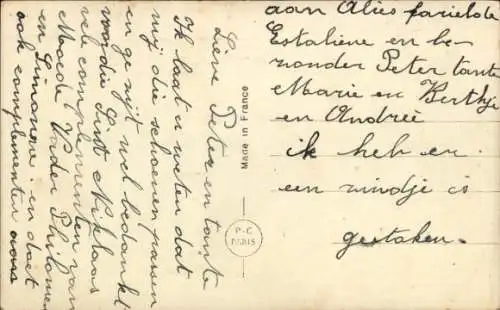 Lieve Peter en tante
Ik laat u weten dat
mij die schoenen passen
en ge zijt wel bedankt
voor die Sint Niklaas
vele complementen van
Moeder Vader Philomene
en Simonne en doet
ook complementen aan
aan Alies
Estaliene en be-
zonder Peter tante
Marie en Berthje
en Andreé
ik heb er
een windje is
gestaken.
Made in France
P-C
PARIS